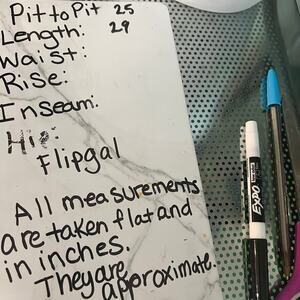 Pit to Pit 25
Length: 29
Waist:
Rise:
Inseam:
Hip:
Flipgal
All measurements
are taken flat and
in inches.
They are
approximate.
EXPO